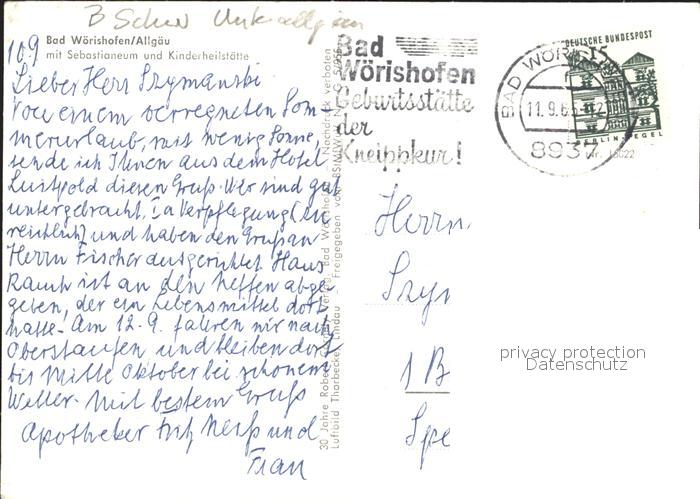 B Schw Unterallgäu
10.9
Bad Wörishofen/Allgäu
mit Sebastianeum und Kinderheilstätte
Lieber Herr Szymanski
Von einem verregneten Som-
merurlaub, mit wenig Sonne,
sende ich Ihnen aus dem Hotel
Luitpold diesen Gruß. Wir sind gut
untergebracht, Ia Verpflegung (zu
reichlich) und haben den Gruß an
Herrn Fischer ausgerichtet. Haus
Rauch ist an den Neffen abge-
geben, der ein Lebensmittel dort
hatte. Am 12.9. fahren wir nach
Oberstaufen und bleiben dort
bis Mitte Oktober bei schönem
Wetter. Mit bestem Gruß
Apotheker Fritz und
Frau
30 Jahre Verlag Bad Wörishofen Nachdruck verboten
Luftbild Thorbecke, Lindau Freigegeben vom
Bad
Wörishofen
Geburtsstätte
der
Kneippkur!
BAD WÖRIS
11.9.65-12
8937
DEUTSCHE BUNDESPOST
15
Herrn
Szy
1 B
Spe
privacy protection
Datenschutz